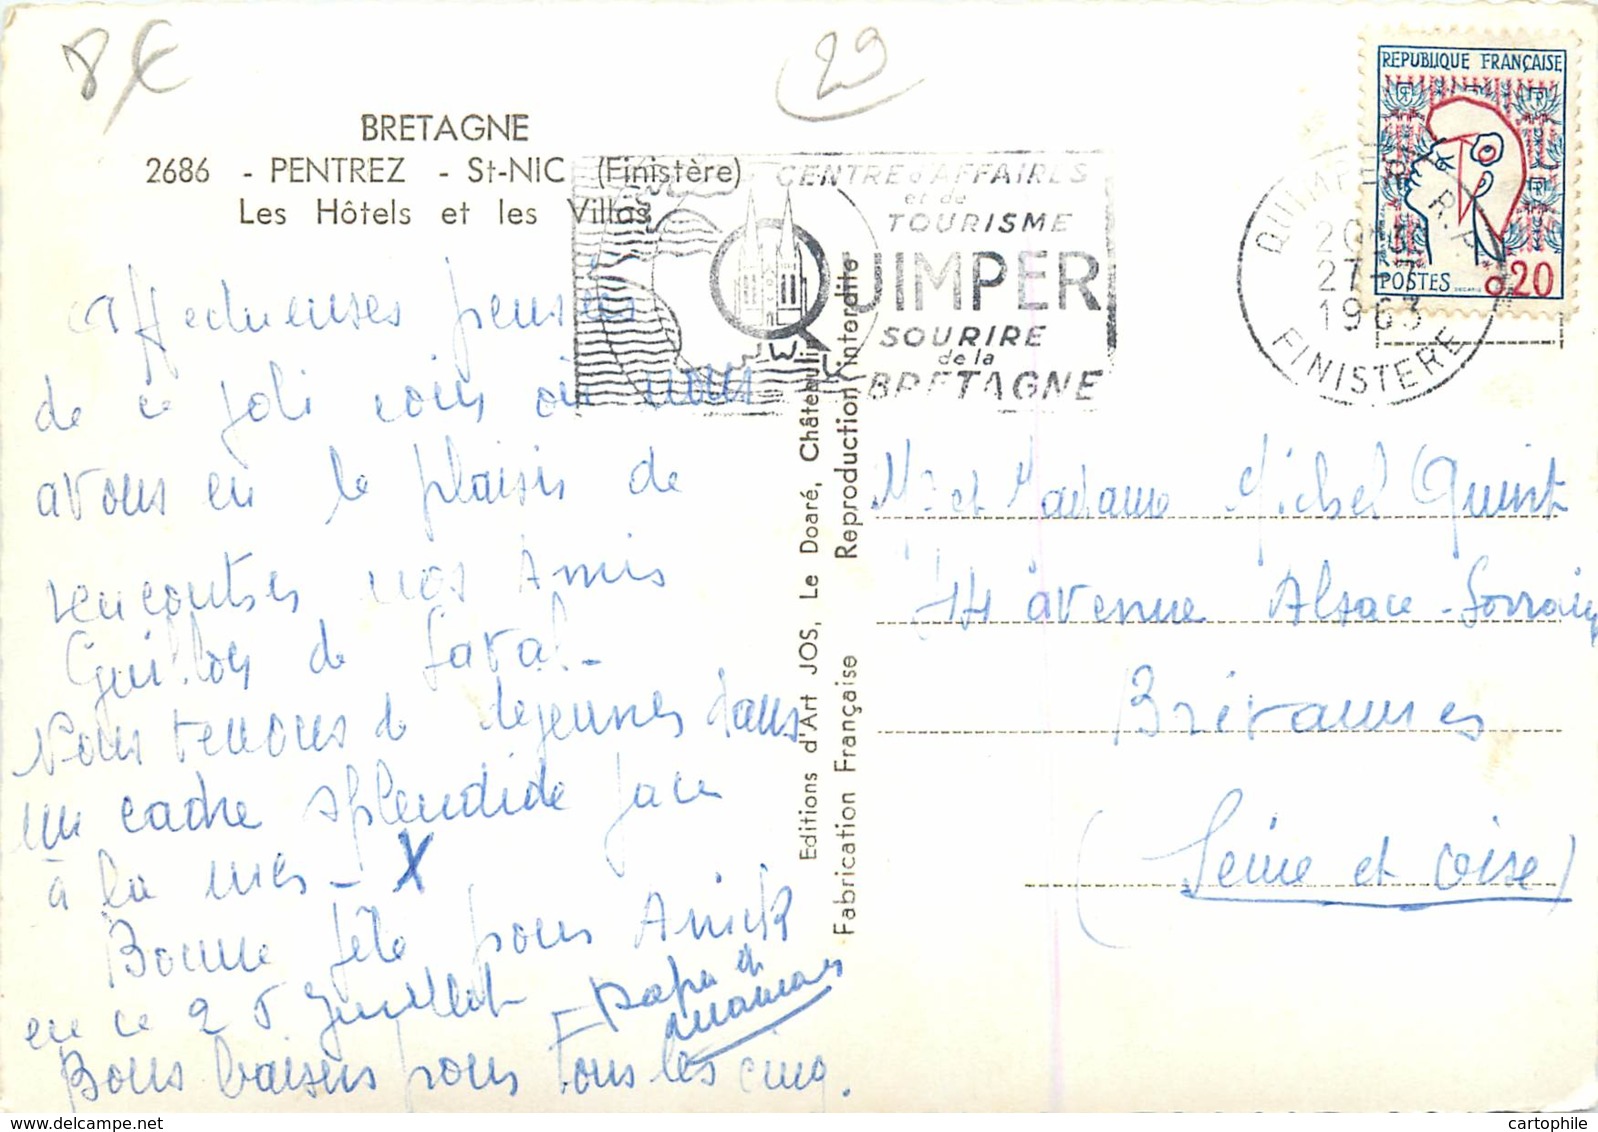 8€
29
BRETAGNE
2686 - PENTREZ - St-NIC (Finistère)
Les Hôtels et les Villas
CENTRE d'AFFAIRES
et de
TOURISME
QUIMPER
SOURIRE
de la
BRETAGNE
J.W.
QUIMPER R.P.
20H
27-7
1963
FINISTERE
REPUBLIQUE FRANÇAISE
POSTES 0,20
Affectueuses pensées
de ce joli coin où nous
avons eu le plaisir de
rencontrer nos Amis
Guilloy de Laval.-
Nous venons de déjeuner dans
un cadre splendide face
à la mer - X
Bonne fête pour Anick
en ce 25 Juillet
Papa et
Maman
Bons baisers pour tous les cinq.
Editions d'Art JOS, Le Doaré, Châteaulin
Fabrication Française Reproduction interdite
Mr et Madame Michel Quint
14 avenue Alsace-Lorraine
Brévannes
(Seine et Oise)
cartophile.com